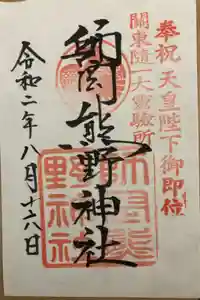 奉祝 天皇陛下御即位
關東随一大霊験所
師岡熊野神社
令和二年八月十六日